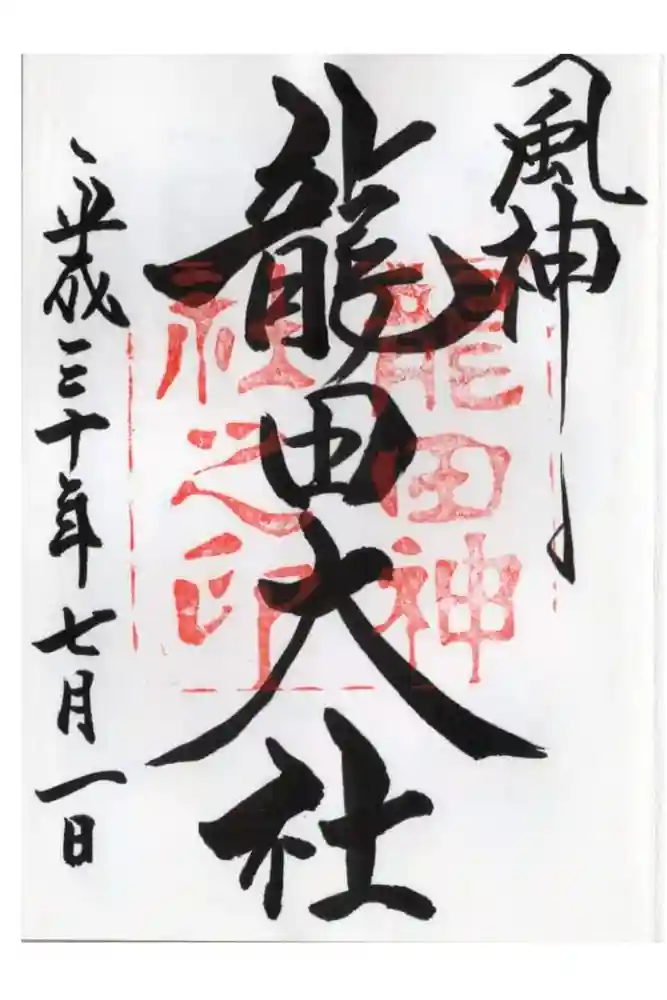 風神
龍田大社
龍田神
社之印
平成三十年七月一日